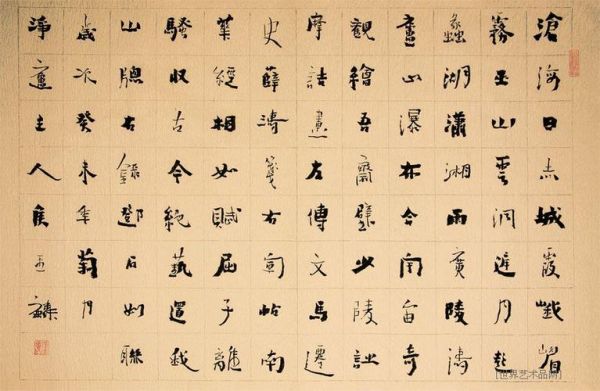 滄海日赤城霞峨嵋
霧巫山雲洞庭月彭
蠡湖瀟湘雨廣陵濤
廬山瀑布合宇宙奇
觀繪吾齋壁少陵詩
摩詰畫左傳文馬遷
史薛濤箋右軍帖南
華經相如賦屈子離
騷収古今絕藝置我
山牕右錄鄧石如聯
歲次癸未年菊月
淨廬主人侯
世界艺术品网